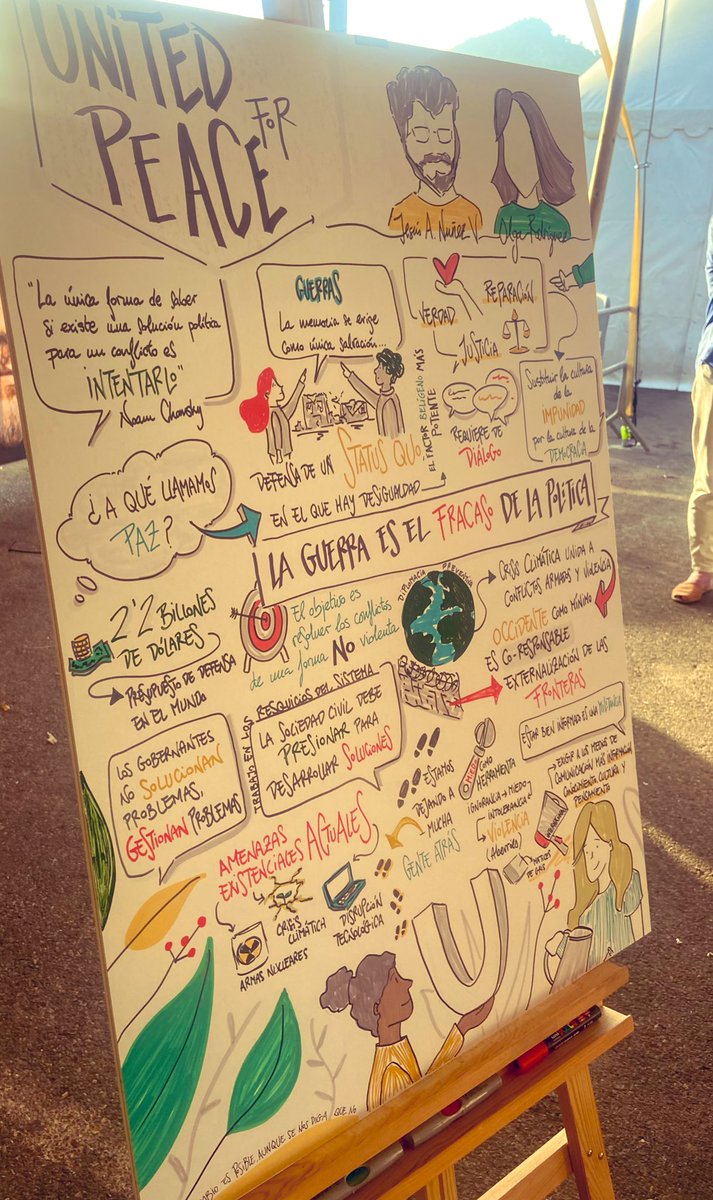 UNITED
FOR
PEACE
Jesús A. Nuñez V.
Olga Rodríguez
"La única forma de saber
si existe una solución política
para un conflicto es
INTENTARLO"
Noam Chomsky
GUERRAS
La memoria se erige
como única salvación...
VERDAD
REPARACIÓN
JUSTICIA
REQUIERE DE
DIÁLOGO
Sustituir la cultura
de la
IMPUNIDAD
por la cultura de la
DEMOCRACIA
DEFENSA DE UN STATUS QUO,
EN EL QUE HAY DESIGUALDAD
EL FACTOR BELÍGENO MÁS
POTENTE
¿A QUÉ LLAMAMOS
PAZ?
LA GUERRA ES EL FRACASO DE LA POLÍTICA
2'2 BILLONES
DE DÓLARES
PRESUPUESTO DE DEFENSA
EN EL MUNDO
El objetivo es
resolver los conflictos
de una forma NO violenta
DIPLOMACIA PREVENTIVA
CRISIS CLIMÁTICA UNIDA A
CONFLICTOS ARMADOS Y VIOLENCIA
OCCIDENTE COMO MÍNIMO
ES CO-RESPONSABLE
EXTERNALIZACIÓN DE LAS
FRONTERAS
LOS GOBERNANTES
NO SOLUCIONAN
PROBLEMAS,
GESTIONAN PROBLEMAS
TRABAJO EN LOS
RESQUICIOS DEL SISTEMA
LA SOCIEDAD CIVIL DEBE
PRESIONAR PARA
DESARROLLAR SOLUCIONES
ESTAMOS
DEJANDO A
MUCHA
GENTE ATRÁS
MIEDO
COMO
HERRAMIENTA
IGNORANCIA → MIEDO
INTOLERANCIA
VIOLENCIA
ESTAR BIEN INFORMADO ES UNA MILITANCIA
EXIGIR A LOS MEDIOS DE
COMUNICACIÓN MÁS INFORMACIÓN
CONOCIMIENTO, CULTURA Y
PENSAMIENTO
AMENAZAS
EXISTENCIALES ACTUALES
ARMAS NUCLEARES
CRISIS
CLIMÁTICA
DISRUPCIÓN
TECNOLÓGICA
ES POSIBLE, AUNQUE SE NOS DIGA QUE NO